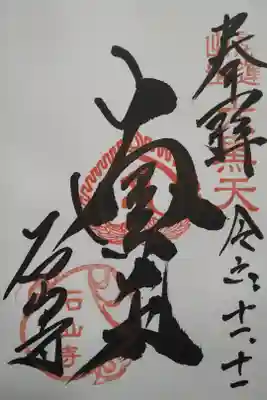 奉拝
大黒天
令六、十一、十一
大黒天
石山寺
石山寺